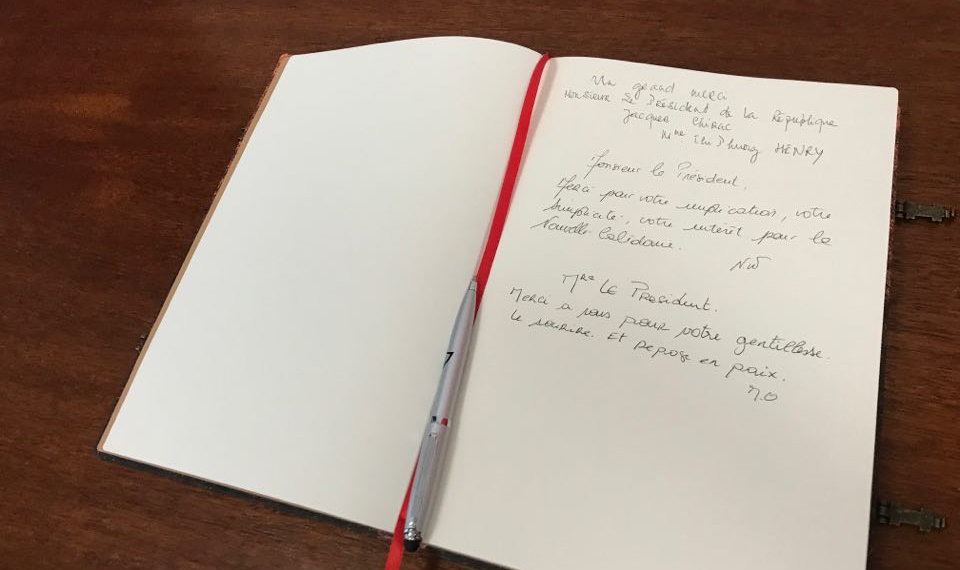 Un grand merci
Monsieur Le Président de la République
Jacques Chirac
Mme HENRY
Monsieur le Président,
Merci pour votre implication, votre
simplicité, votre intérêt pour la
Nouvelle Calédonie.
NW
Mre Le President.
Merci a vous pour votre gentillesse.
le sourire. Et repose en paix.
M.O